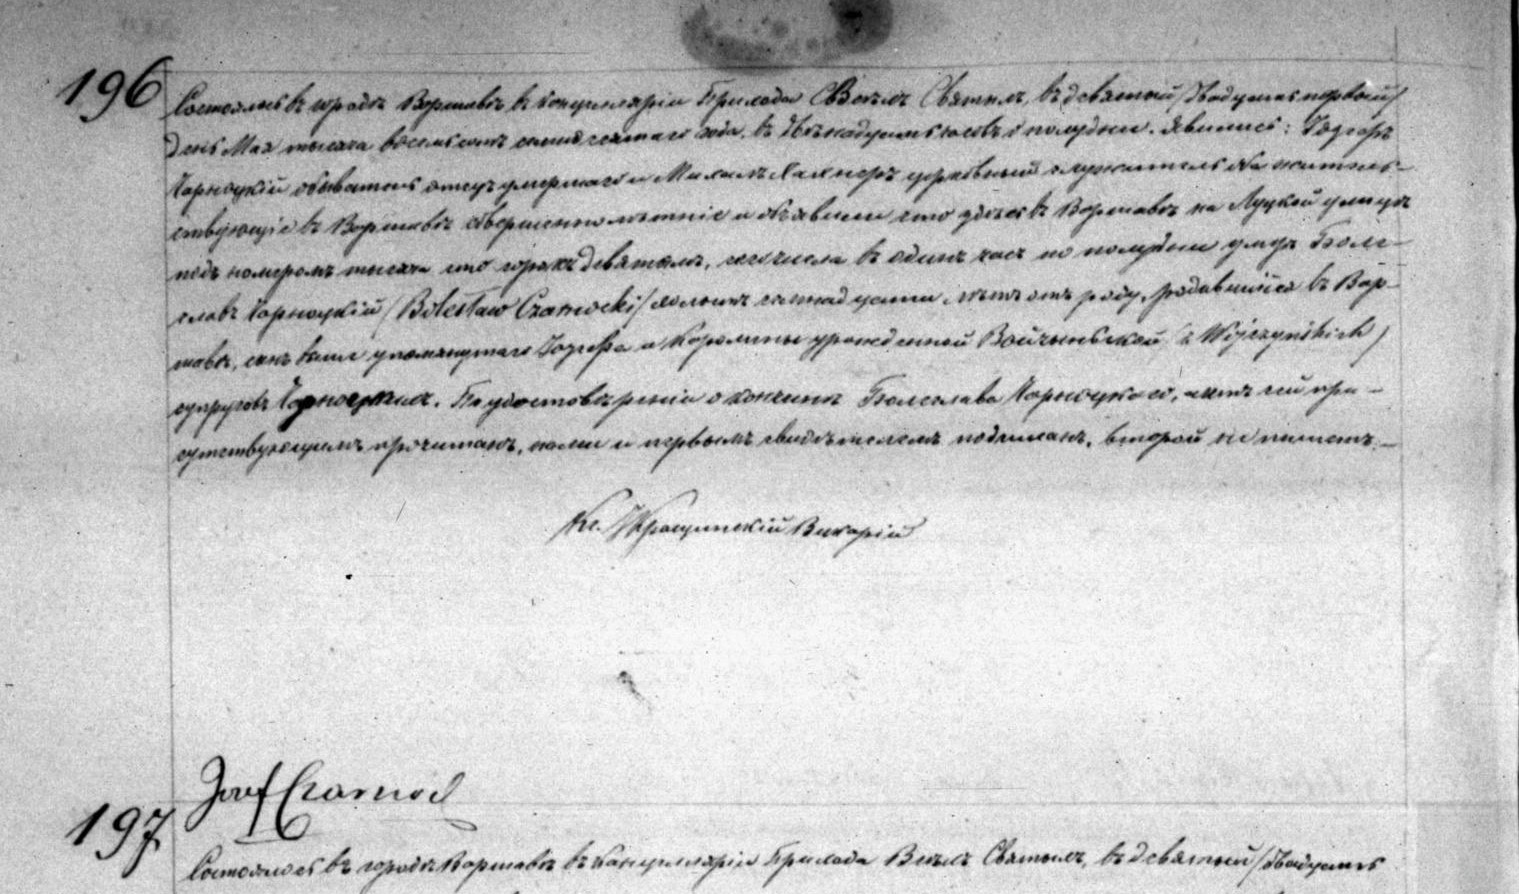 196
Состоялось въ городѣ Варшавѣ въ Канцеляріи Прихода Всѣхъ Святыхъ, въ девятый /двадцать первый/
день Мая тысяча восемьсотъ года, въ двѣнадцать часовъ полудни. Явились: Іозефъ
Чарноцкій обыватель отецъ умершаго и Михаилъ церковный служитель оба житель-
ствующіе въ Варшавѣ совершеннолѣтніе и объявили что здѣсь въ Варшавѣ на улицѣ
подъ номеромъ тысяча сто сорокъ девятымъ, сего числа въ одинъ часъ по полудни умеръ Боле-
славъ Чарноцкій /Bolesław Czarnocki/ холостъ лѣтъ отъ роду, родившійся въ Вар-
шавѣ, сынъ упомянутаго Іозефа и Каролины урожденной Войчинской /z Wojczyńskich/
супруговъ Чарноцкихъ. По удостовѣреніи о кончинѣ Болеслава Чарноцкаго, актъ сей при-
сутствующимъ прочитанъ, нами и первымъ свидѣтелемъ подписанъ, второй не пишетъ. —
Кс. Викарій
Józef Czarnocki
197
Состоялось въ городѣ Варшавѣ въ Канцеляріи Прихода Всѣхъ Святыхъ, въ девятый /двадцать